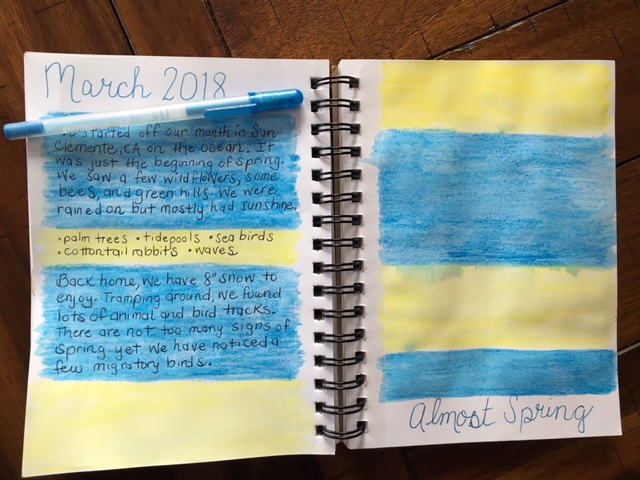 March 2018
started off our month in San
Clemente, CA on the ocean. It
was just the beginning of spring.
We saw a few wildflowers, some
bees, and green hills. We were
rained on but mostly had sunshine.
• palm trees • tidepools • sea birds
• cottontail rabbits • waves
Back home, we have 8" snow to
enjoy. Tramping around, we found
lots of animal and bird tracks.
There are not too many signs of
Spring yet. We have noticed a
few migratory birds.
Almost Spring